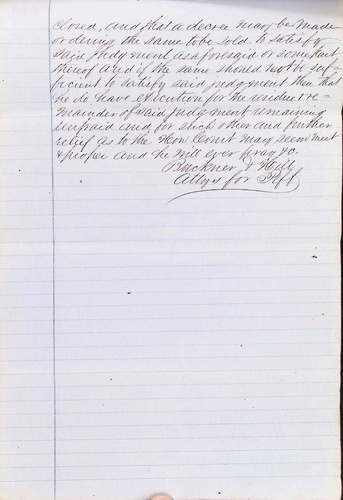 closed, and that a decree may be made
ordering the same to be sold to satisfy
said Judgment as aforesaid or some part
thereof and if the same should not be suf-
ficient to satisfy said judgment then that
he do have execution for the residue & re-
mainder of said judgment remaining
unpaid and for such other and further
relief as to the Hon Court may seem meet
& proper and he will ever pray &c.
Buckner & Hill
Attys for Plff